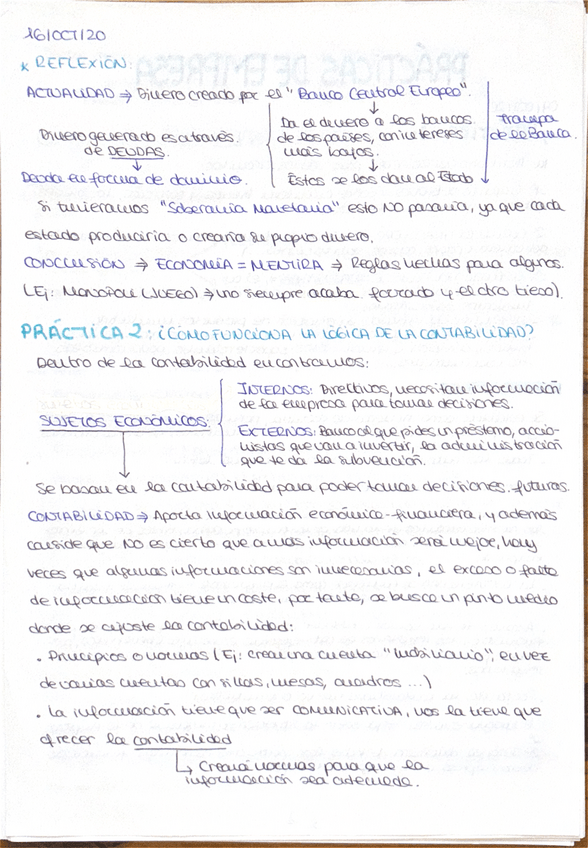 16/OCT/20
* REFLEXIÓN:
ACTUALIDAD ⇒ Dinero creado por el "Banco Central Europeo".
Dinero generado es a través
de DEUDAS.
Deuda en forma de dominio.
Da el dinero a los bancos
de los países, con intereses
más bajos.
Estos se los dan al Estado
Trampa
de la Banca.
Si tuvieramos "Soberanía Monetaria" esto NO pasaría, ya que cada
estado produciría o crearía su propio dinero.
CONCLUSIÓN ⇒ ECONOMÍA = MENTIRA ⇒ Reglas hechas para algunos.
(Ej: MONOPOLI (JUEGO) ⇒ uno siempre acaba forrado y el otro tieso).
PRÁCTICA 2: ¿CÓMO FUNCIONA LA LÓGICA DE LA CONTABILIDAD?
Dentro de la contabilidad encontramos:
SUJETOS ECONÓMICOS:
INTERNOS: Directivos, necesitan información
de la empresa para tomar decisiones.
EXTERNOS: Banco al que pides un préstamo, accio-
nistas que van a invertir, la administración
que te da la subvención.
Se basan en la contabilidad para poder tomar decisiones futuras.
CONTABILIDAD ⇒ Aporta información económico-financiera, y además
coincide que NO es cierto que a mas información será mejor, hay
veces que algunas informaciones son innecesarias, el exceso o falta
de información tiene un coste, por tanto, se busca un punto medio
donde se ajuste la contabilidad:
· Principios o normas (Ej: Crean una cuenta "Mobiliario", en vez
de varias cuentas con sillas, mesas, cuadros ...)
· La información tiene que ser COMUNICATIVA, nos la tiene que
ofrecer la contabilidad
↳ Creará normas para que la
información sea adecuada.